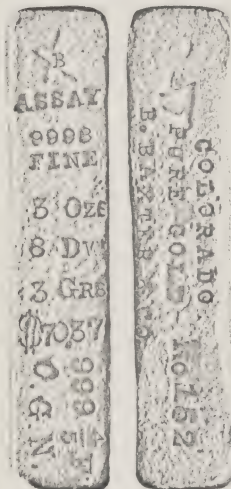 B
ASSAY
9998
FINE
3 OZS
8 DW
3 GRS
$70.37
O. G. N.
999
COLORADO
PURE GOLD No 152
B. BAXTER &